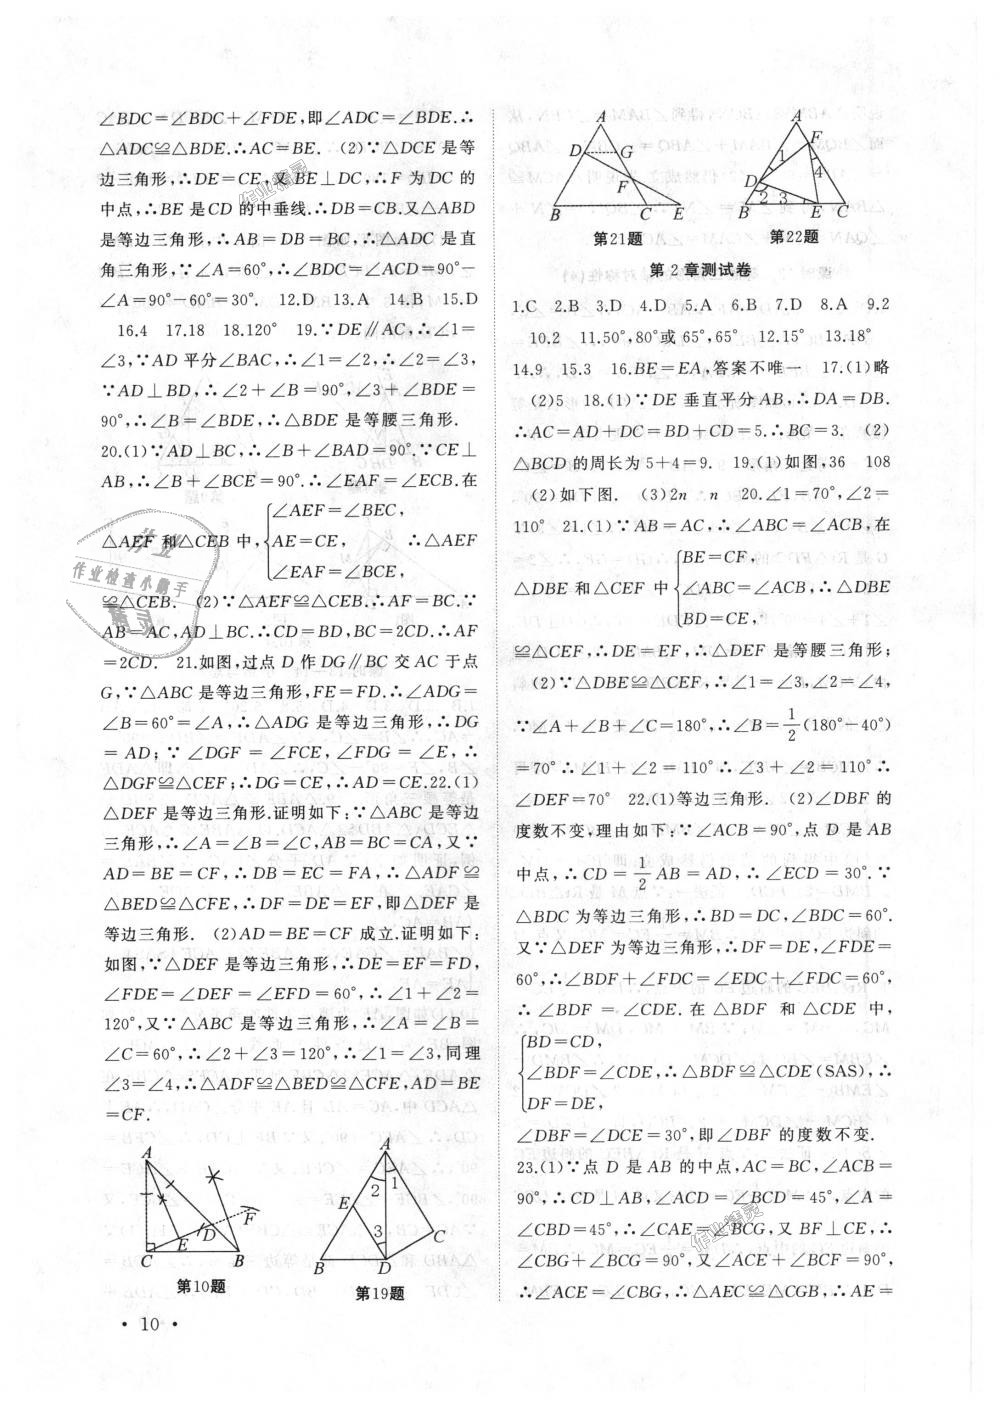 ∠BDC=∠BDC+∠FDE,即∠ADC=∠BDE.∴
△ADC≌△BDE.∴AC=BE. (2)∵△DCE是等
边三角形,∴DE=CE,又BE⊥DC,∴F为DC的
中点,∴BE是CD的中垂线.∴DB=CB.又△ABD
是等边三角形,∴AB=DB=BC,∴△ADC是直
角三角形,∵∠A=60°,∴∠BDC=∠ACD=90°-
∠A=90°-60°=30°. 12.D 13.A 14.B 15.D
16.4 17.18 18.120° 19.∵DE∥AC,∴∠1=
∠3,∵AD平分∠BAC,∴∠1=∠2,∴∠2=∠3,
∵AD⊥BD,∴∠2+∠B=90°,∠3+∠BDE=
90°,∴∠B=∠BDE,∴△BDE是等腰三角形.
20.(1)∵AD⊥BC,∴∠B+∠BAD=90°.∵CE⊥
AB,∴∠B+∠BCE=90°.∴∠EAF=∠ECB.在
△AEF和△CEB中,{∠AEF=∠BEC,
AE=CE, ∴△AEF
∠EAF=∠BCE,
≌△CEB. (2)∵△AEF≌△CEB.∴AF=BC.∵
AB=AC,AD⊥BC.∴CD=BD,BC=2CD.∴AF
=2CD. 21.如图,过点D作DG∥BC交AC于点
G,∵△ABC是等边三角形,FE=FD.∴∠ADG=
∠B=60°=∠A,∴△ADG是等边三角形,∴DG
=AD;∵∠DGF=∠FCE,∠FDG=∠E,∴
△DGF≌△CEF;∴DG=CE,∴AD=CE.22.(1)
△DEF是等边三角形.证明如下:∵△ABC是等边
三角形,∴∠A=∠B=∠C,AB=BC=CA,又∵
AD=BE=CF,∴DB=EC=FA,∴△ADF≌
△BED≌△CFE,∴DF=DE=EF,即△DEF是
等边三角形. (2)AD=BE=CF成立.证明如下:
如图,∵△DEF是等边三角形,∴DE=EF=FD,
∠FDE=∠DEF=∠EFD=60°,∴∠1+∠2=
120°,又∵△ABC是等边三角形,∴∠A=∠B=
∠C=60°,∴∠2+∠3=120°,∴∠1=∠3,同理
∠3=∠4,∴△ADF≌△BED≌△CFE,AD=BE
=CF.
A
E D F
C B
第10题
A
1 2
E
3
C
B D
第19题
• 10 •
A
D G
F
B C E
第21题
A
F
1 4
D
2 3
B E C
第22题
第2章测试卷
1.C 2.B 3.D 4.D 5.A 6.B 7.D 8.A 9.2
10.2 11.50°,80°或65°,65° 12.15° 13.18°
14.9 15.3 16.BE=EA,答案不唯一 17.(1)略
(2)5 18.(1)∵DE垂直平分AB,∴DA=DB.
∴AC=AD+DC=BD+CD=5.∴BC=3. (2)
△BCD的周长为5+4=9. 19.(1)如图,36 108
(2)如下图. (3)2n n 20.∠1=70°,∠2=
110° 21.(1)∵AB=AC,∴∠ABC=∠ACB,在
△DBE和△CEF中{BE=CF,
∠ABC=∠ACB,∴△DBE
BD=CE,
≌△CEF,∴DE=EF,∴△DEF是等腰三角形;
(2)∵△DBE≌△CEF,∴∠1=∠3,∠2=∠4,
∵∠A+∠B+∠C=180°,∴∠B=1/2(180°-40°)
=70°∴∠1+∠2=110°∴∠3+∠2=110°∴
∠DEF=70° 22.(1)等边三角形. (2)∠DBF的
度数不变,理由如下:∵∠ACB=90°,点D是AB
中点,∴CD=1/2AB=AD,∴∠ECD=30°.∵
△BDC为等边三角形,∴BD=DC,∠BDC=60°.
又∵△DEF为等边三角形,∴DF=DE,∠FDE=
60°,∴∠BDF+∠FDC=∠EDC+∠FDC=60°,
∴∠BDF=∠CDE.在△BDF和△CDE中,
{BD=CD,
∠BDF=∠CDE,∴△BDF≌△CDE(SAS),∴
DF=DE,
∠DBF=∠DCE=30°,即∠DBF的度数不变.
23.(1)∵点D是AB的中点,AC=BC,∠ACB=
90°,∴CD⊥AB,∠ACD=∠BCD=45°,∠A=
∠CBD=45°,∴∠CAE=∠BCG,又BF⊥CE,∴
∠CBG+∠BCG=90°,又∠ACE+∠BCF=90°,
∴∠ACE=∠CBG,∴△AEC≌△CGB,∴AE=
作业
作业检查小帮手
精灵
作业精灵
作业精灵